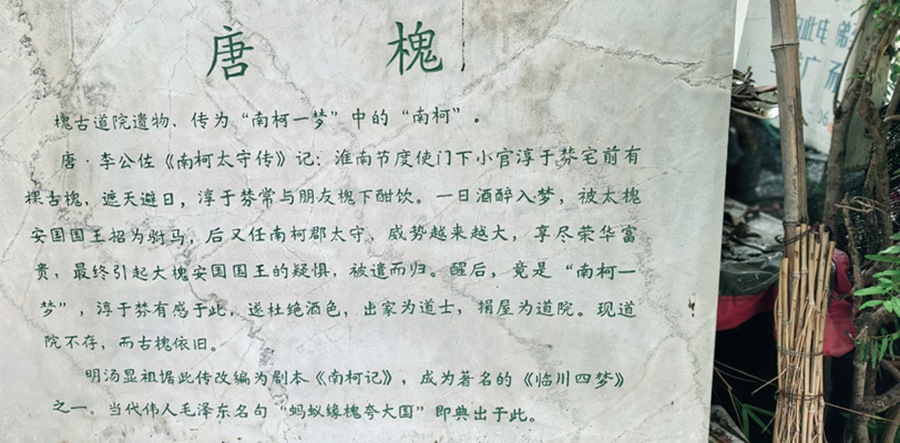 唐 槐
槐古道院遗物、传为“南柯一梦”中的“南柯”。
唐·李公佐《南柯太守传》记：淮南节度使门下小官淳于棼宅前有
棵古槐，遮天避日，淳于棼常与朋友槐下酣饮。一日酒醉入梦，被大槐
安国国王招为驸马，后又任南柯郡太守，威势越来越大，享尽荣华富
贵，最终引起大槐安国国王的疑惧，被遣而归。醒后，竟是“南柯一
梦”，淳于棼有感于此，遂杜绝酒色，出家为道士，捐屋为道院。现道
院不存，而古槐依旧。
明汤显祖据此传改编为剧本《南柯记》，成为著名的《临川四梦》
之一。当代伟人毛泽东名句“蚂蚁缘槐夸大国”即典出于此。